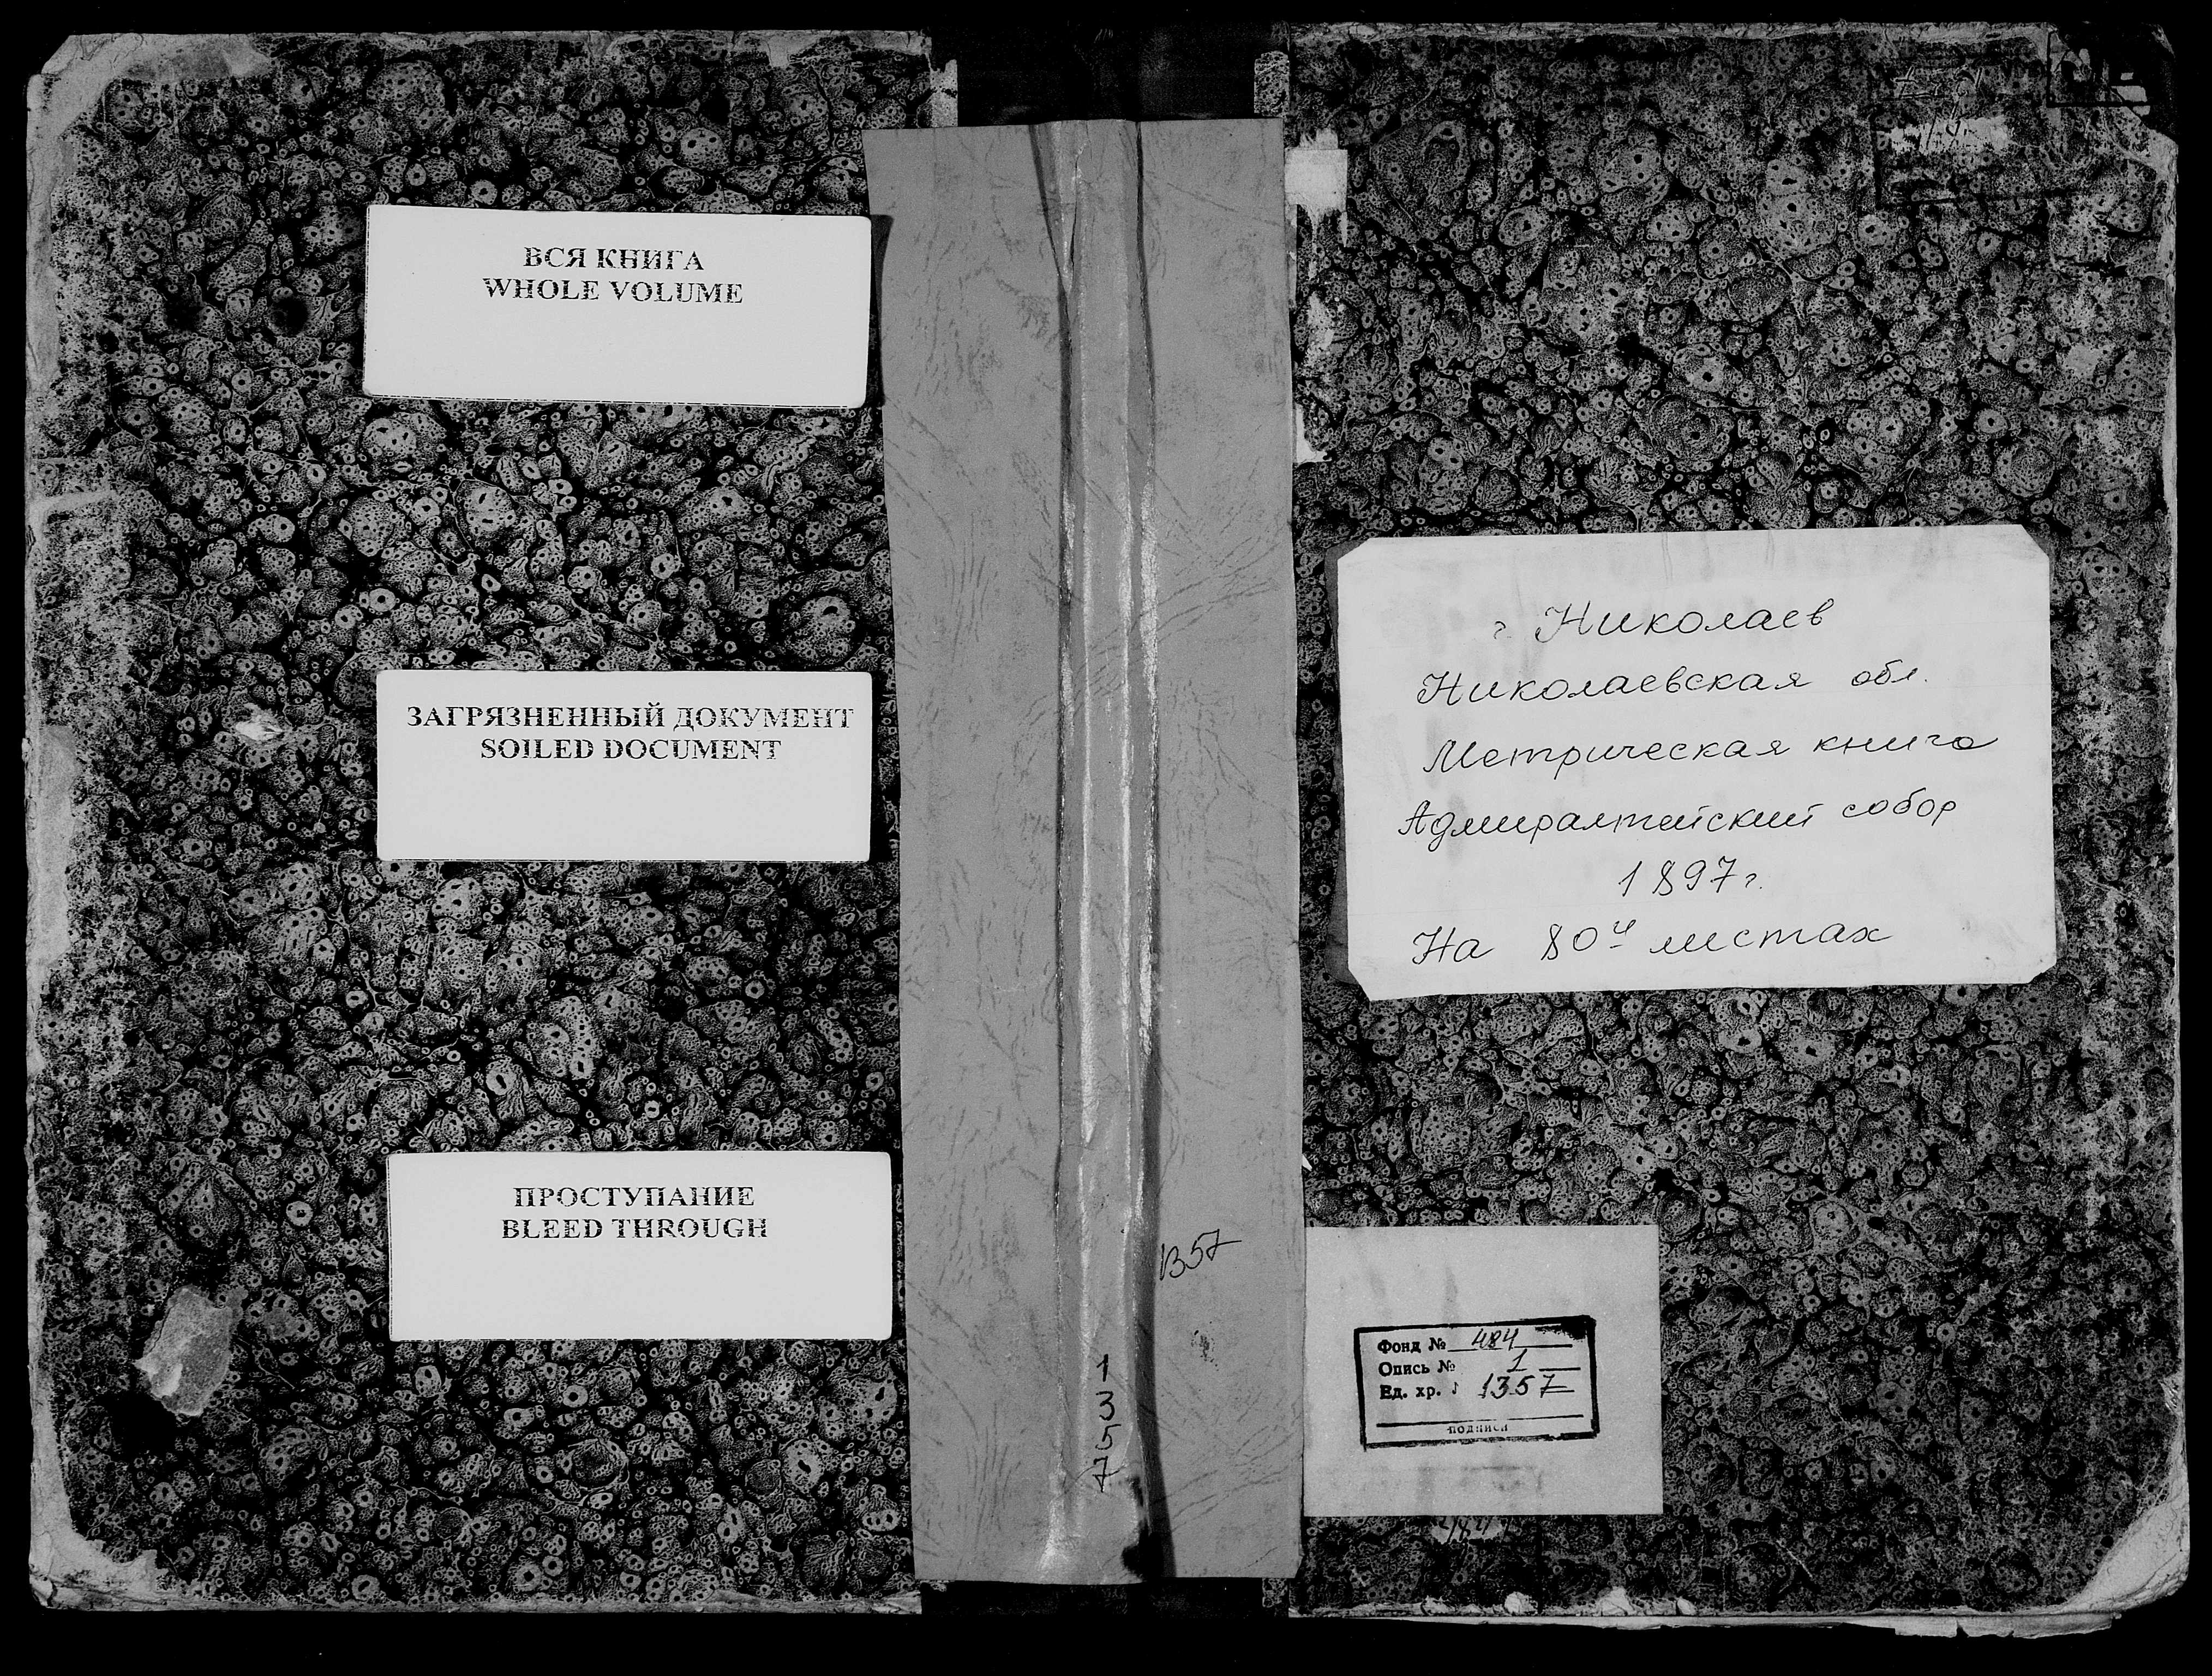 ВСЯ КНИГА
WHOLE VOLUME
ЗАГРЯЗНЕННЫЙ ДОКУМЕНТ
SOILED DOCUMENT
ПРОСТУПАНИЕ
BLEED THROUGH
1357
1357
г. Николаев
Николаевская обл.
Метрическая книга
Адмиралтейский собор
1897 г.
На 80и листах
Фонд № 484
Опись № 1
Ед. хр. № 1357
подписи